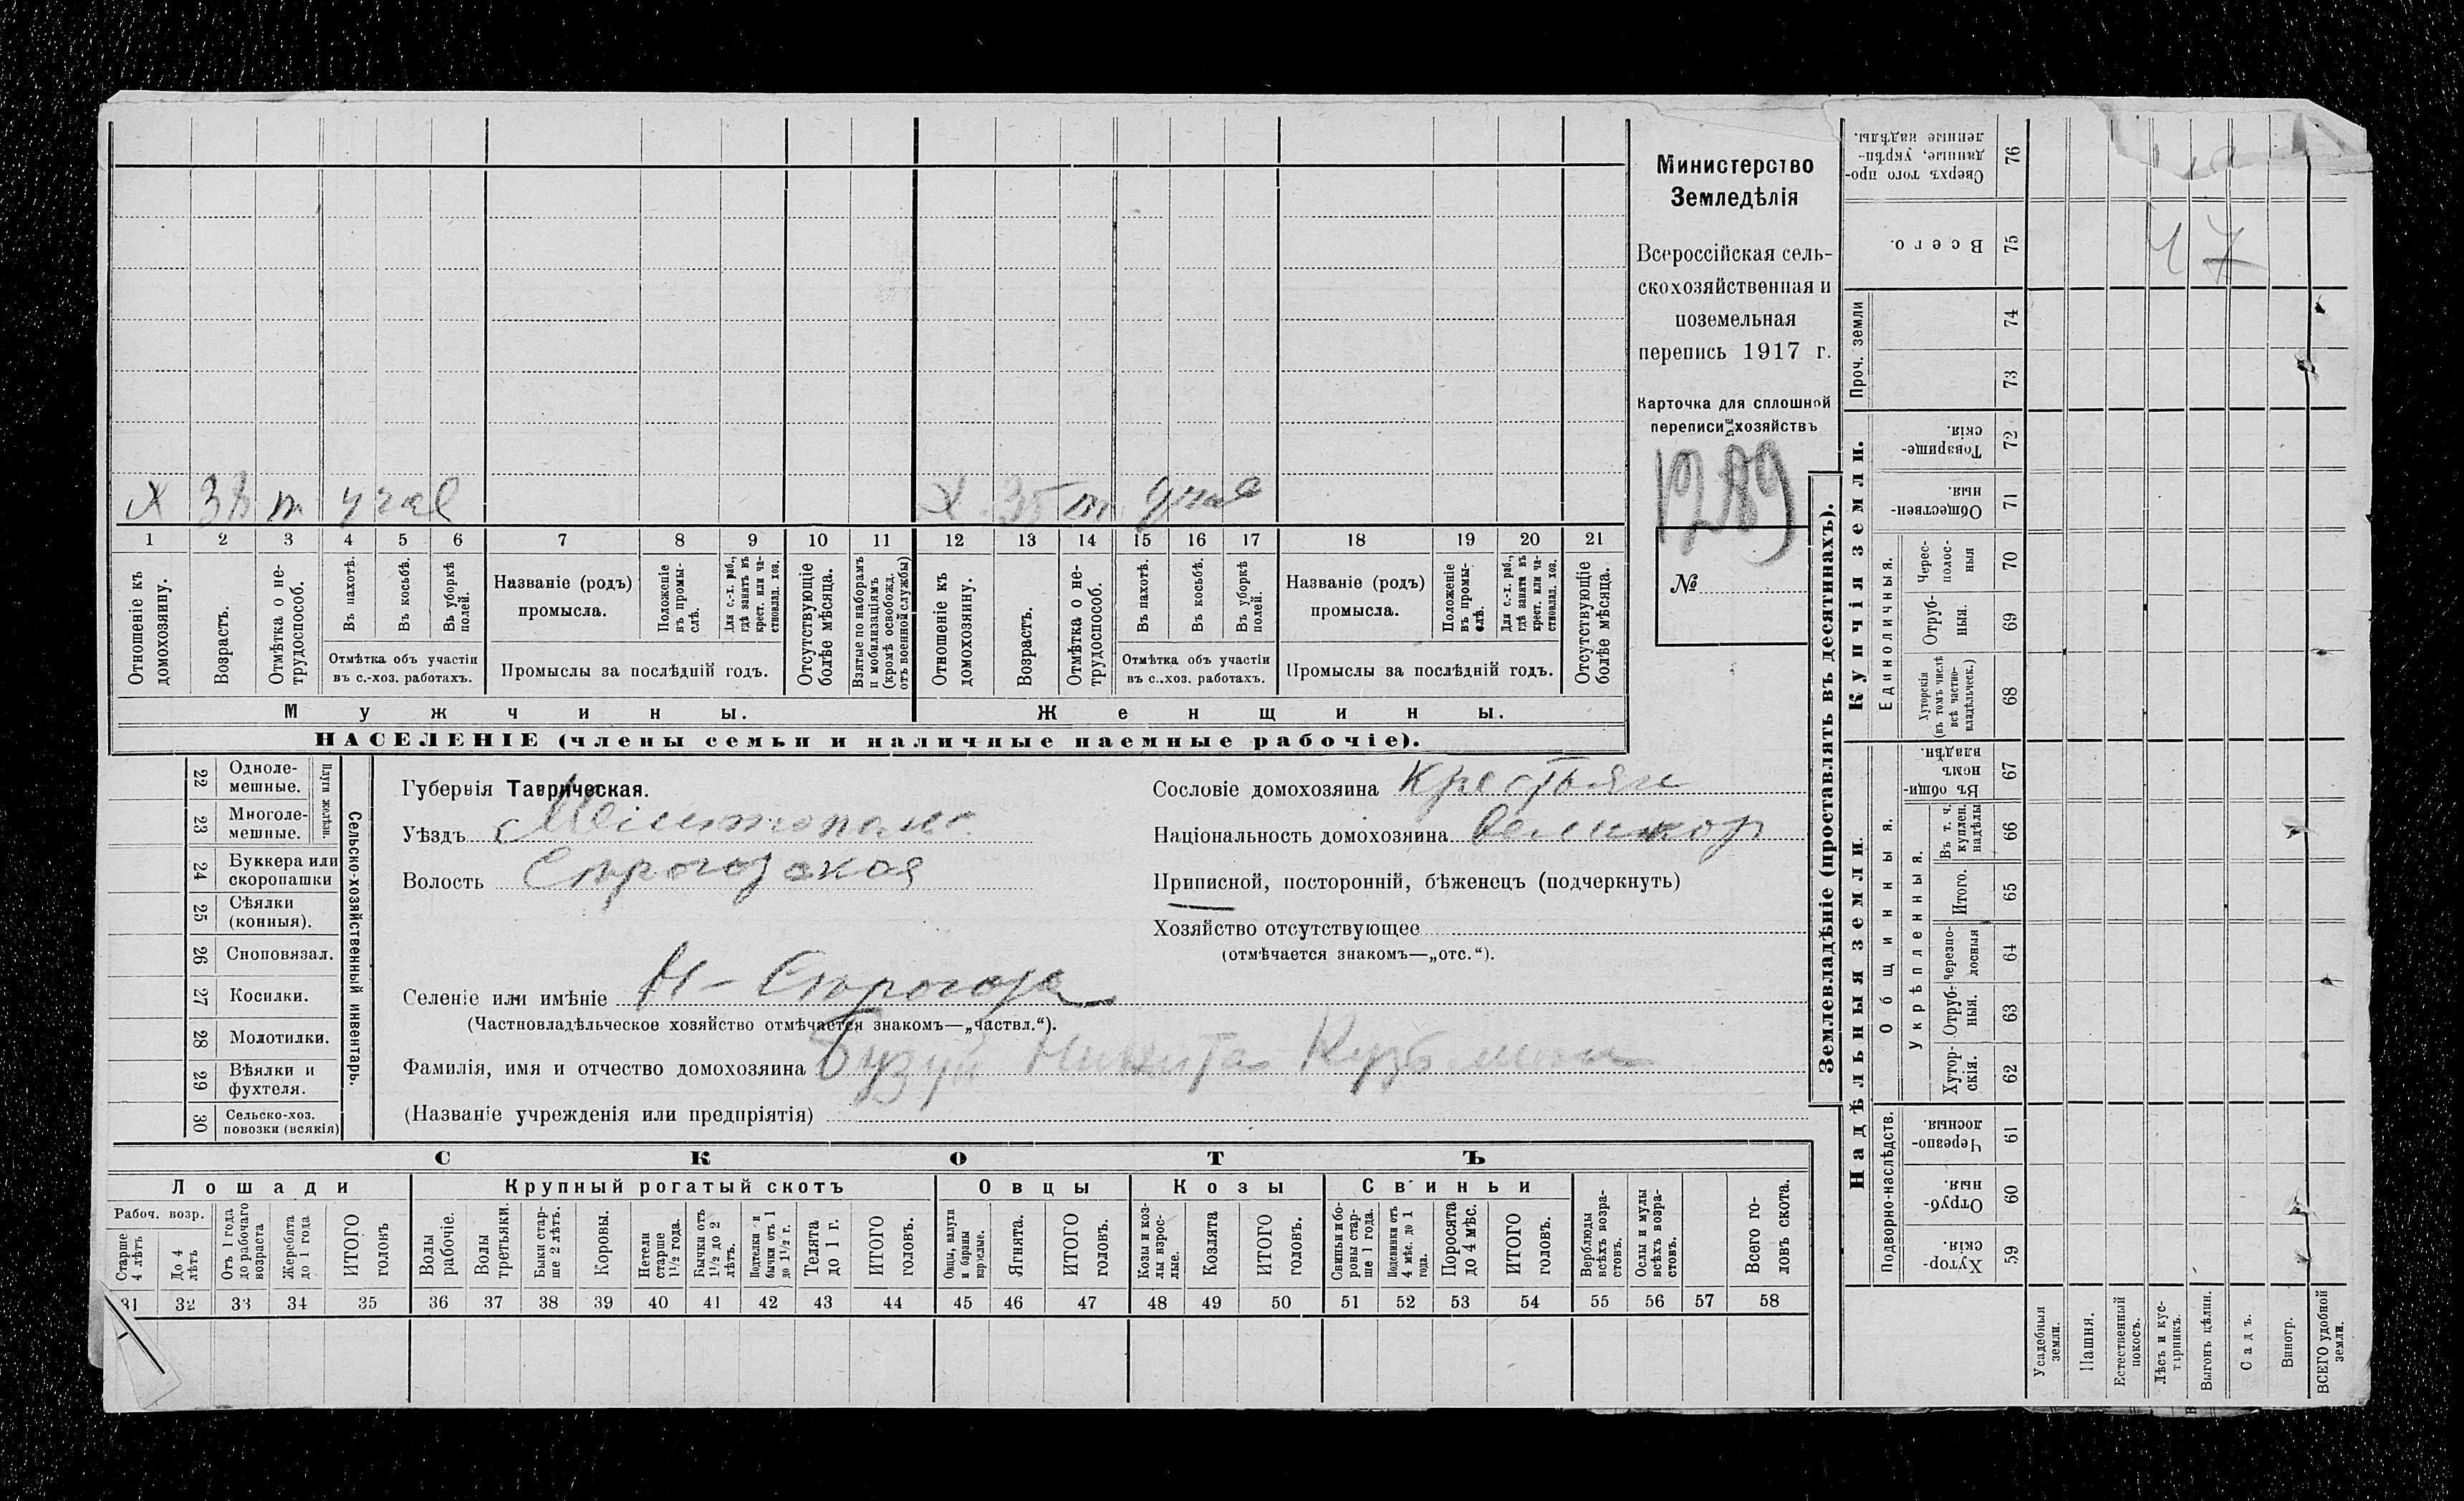 Министерство
Земледѣлія
Всероссійская сель-
скохозяйственная и
поземельная
перепись 1917 г.
Карточка для сплошной
переписи хозяйствъ
1289
№
Х 38 т учас
Х 35 т учас
1 2 3 4 5 6 7 8 9 10 11 12 13 14 15 16 17 18 19 20 21
Отношеніе къ домохозяину.
Возрастъ.
Отмѣтка о не-трудоспособ.
Въ пахотѣ.
Въ косьбѣ.
Въ уборкѣ полей.
Отмѣтка объ участіи въ с.-хоз. работахъ.
Названіе (родъ) промысла.
Положеніе въ промы-слѣ.
Для с.-х. раб., гдѣ занятъ въ крест. или ча-стновлад. хоз.
Промыслы за послѣдній годъ.
Отсутствующіе болѣе мѣсяца.
Взятые по наборамъ и мобилизаціямъ (кромѣ освобожд. отъ военной службы)
Отношеніе къ домохозяину.
Возрастъ.
Отмѣтка о не-трудоспособ.
Въ пахотѣ.
Въ косьбѣ.
Въ уборкѣ полей.
Отмѣтка объ участіи въ с.-хоз. работахъ.
Названіе (родъ) промысла.
Положеніе въ промы-слѣ.
Для с.-х. раб., гдѣ занята въ крест. или ча-стновлад. хоз.
Промыслы за послѣдній годъ.
Отсутствующіе болѣе мѣсяца.
Мужчины.
Женщины.
НАСЕЛЕНІЕ (члены семьи и наличные наемные рабочіе).
22 Одноле-мешные.
23 Многоле-мешные.
Плуги желѣзн.
24 Буккера или скоропашки
25 Сѣялки (конныя).
26 Сноповязал.
27 Косилки.
28 Молотилки.
29 Вѣялки и фухтеля.
30 Сельско-хоз. повозки (всякія)
Сельско-хозяйственный инвентарь.
Губернія Таврическая.
Уѣздъ
Волость
Селеніе или имѣніе
(Частновладѣльческое хозяйство отмѣчается знакомъ—„частвл.“).
Фамилія, имя и отчество домохозяина Бузун Никита Кузьмин
(Названіе учрежденія или предпріятія)
Сословіе домохозяина Крестьян
Національность домохозяина Великор
Приписной, посторонній, бѣженецъ (подчеркнуть)
Хозяйство отсутствующее
(отмѣчается знакомъ—„отс.“).
СКОТЪ
Лошади
Крупный рогатый скотъ
Овцы
Козы
Свиньи
Рабоч. возр.
Старше 4 лѣтъ
До 4 лѣтъ
Отъ 1 года до рабочаго возраста
Жеребята до 1 года
ИТОГО головъ
Волы рабочіе.
Волы третьяки.
Быки стар-ше 2 лѣтъ.
Коровы.
Нетели старше 1½ года.
Бычки отъ 1½ до 2 лѣтъ.
Подтелки и бычки отъ 1 до 1½ г.
Телята до 1 г.
ИТОГО головъ.
Овцы, валухи и бараны взрослые.
Ягнята.
ИТОГО головъ.
Козы и коз-лы взрос-лые.
Козлята
ИТОГО головъ.
Свиньи и бо-ровы стар-ше 1 года.
Подсвинки отъ 4 мѣс. до 1 года.
Поросята до 4 мѣс.
ИТОГО головъ.
Верблюды всѣхъ возра-стовъ.
Ослы и мулы всѣхъ возра-стовъ.
Всего го-ловъ скота.
31 32 33 34 35 36 37 38 39 40 41 42 43 44 45 46 47 48 49 50 51 52 53 54 55 56 57 58
Землевладѣніе (проставлять въ десятинахъ).
Надѣльныя земли.
Купчія земли.
Проч. земли
Подворно-наслѣдств.
Общинныя.
Укрѣпленныя.
Единоличныя.
76 Сверхъ того про-данные, укрѣп-ленные надѣлы.
75 Всего.
47
74
73
72 Товарище-скія.
71 Обществен-ныя.
70 Черес-полос-ныя
69 Отруб-ныя.
68 Хуторскія (въ томъ числѣ всѣ частно-владѣльческ.)
67 Въ общин-номъ владѣн.
66 Въ т. ч. куплен. надѣлы
65 Итого.
64 Черезпо-лосныя
63 Отруб-ныя.
62 Хутор-скія.
61 Черезпо-лосныя.
60 Отруб-ныя.
59 Хутор-скія.
Усадебныя земли.
Пашня.
Естественный покосъ.
Лѣсъ и кус-тарникъ.
Выгонъ цѣлин.
Садъ.
Виногр.
ВСЕГО удобной земли.